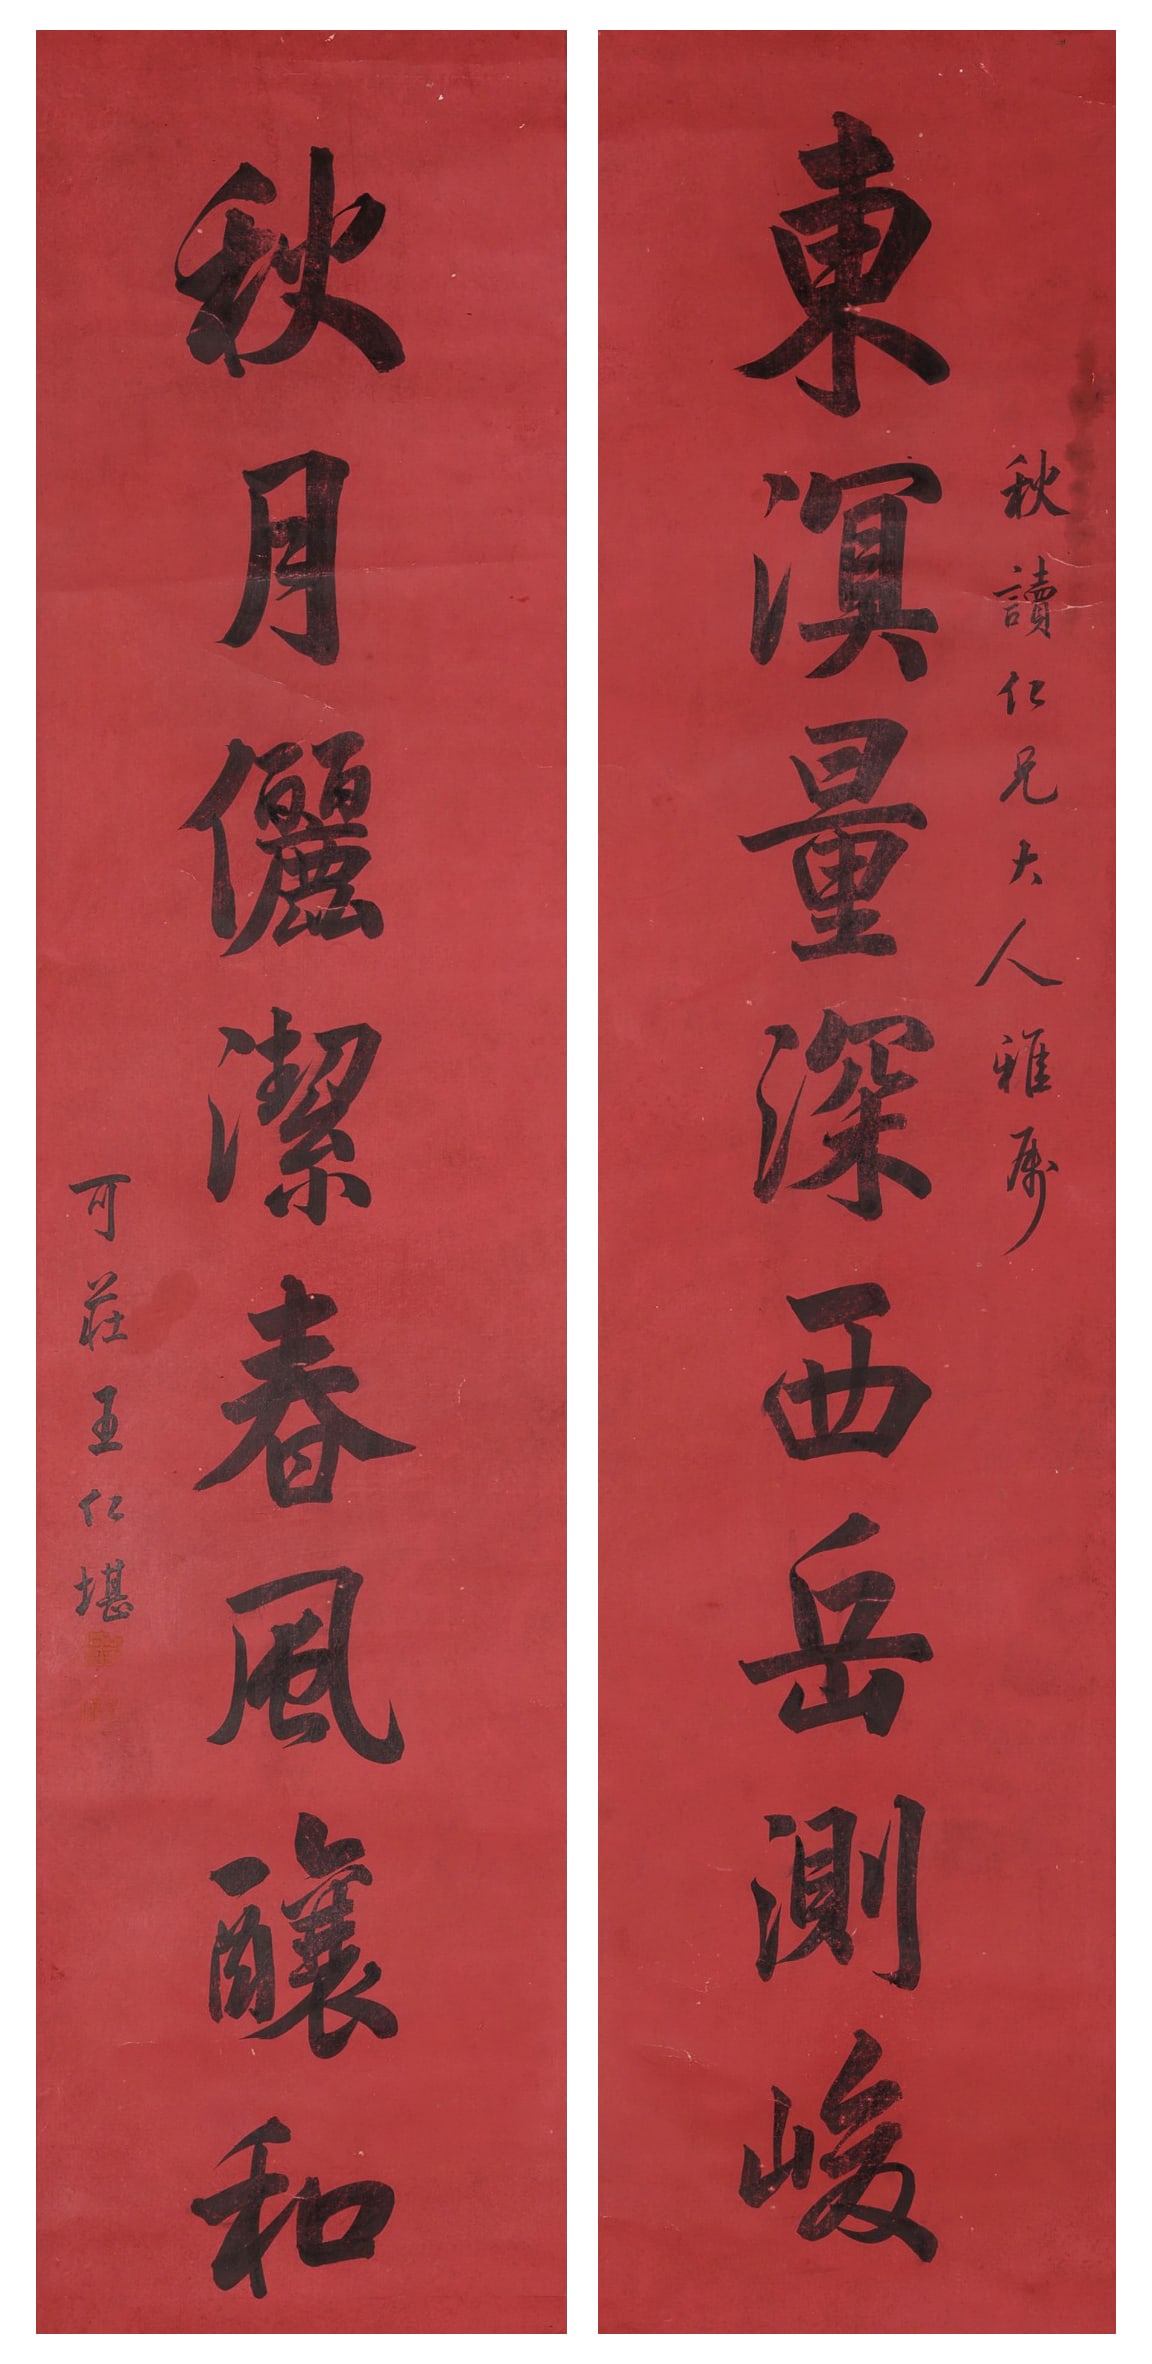 秋讀仁兄大人雅屬
東溟量深西岳測峻
秋月儷潔春風釀和
可莊王仁堪